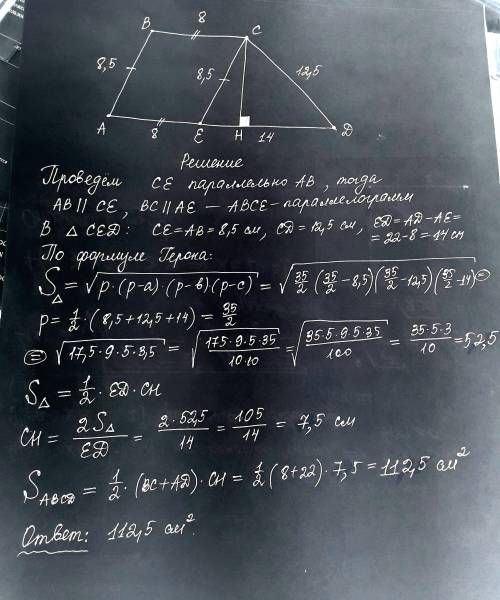 B 8 C
8,5 8,5 12,5
A 8 E H 14 D
Решение
Проведём CE параллельно AB, тогда
AB || CE, BC || AE — ABCE - параллелограмм
В △CED: CE = AB = 8,5 см, CD = 12,5 см, ED = AD - AE =
= 22 - 8 = 14 см
По формуле Герона:
S△ = √(p·(p-a)·(p-в)(p-c)) = √(35/2 (35/2 - 8,5)(35/2 - 12,5)(35/2 - 14)) =
p = 1/2 · (8,5 + 12,5 + 14) = 35/2
= √(17,5·9·5·3,5) = √(175·9·5·35/10·10) = √(35·5·9·5·35/100) = 35·5·3/10 = 52,5
S△ = 1/2 · ED · CH
CH = 2S△/ED = 2·52,5/14 = 105/14 = 7,5 см
S ABCD = 1/2 · (BC + AD) · CH = 1/2 (8 + 22) · 7,5 = 112,5 см²
Ответ: 112,5 см².